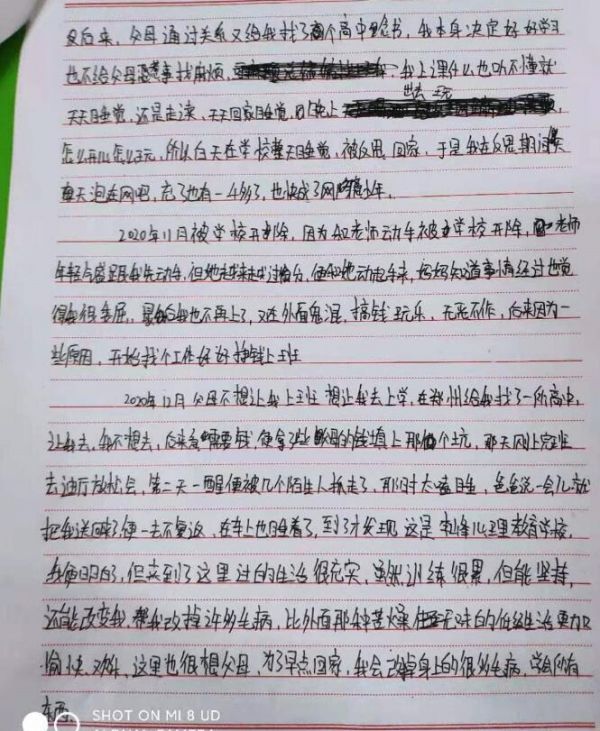 又后来，父母通过关系又给我找了个高中念书，我本身决定好好学习
也不给父母惹事找麻烦，我上课什么也听不懂就
出去玩
天天睡觉，还是走读，天天回家睡觉，晚上
怎么开心怎么玩，所以白天在学校整天睡觉，被反思回家，于是我在反思期间
每天泡在网吧，充了也有一4多了，也快成了网瘾少年。
2020年11月被学校开除，因为和老师动手被学校开除，老师
年轻气盛跟我先动手，但她越来越过分，便和她动起手来，妈妈知道事情经过也觉
得我很委屈，最后我也不再上了，又在外面鬼混，搞钱玩乐，无恶不作，后来因为一
些原因，开始找个工作好好挣钱上班
2020年12月父母不想让我上班想让我去上学，在郑州给我找了一所高中，
让我去，我不想去，后来急需要钱，便拿了些的钱填上那个坑，那天网上完班
去迪厅放松会，第二天一醒便被几个陌生人抓走了，那时太瞌睡，爸爸说一会儿就
把我送回来了便一去不复返，在车上也睡着了，到了才发现这是心理教育学校，
我便明白了，但来到了这里过的生活很充实，虽然训练很累，但能坚持，
还能改变我，帮我改掉许多毛病，比外面那种苦燥无味的生活更加
愉快、欢乐，这里也很想父母，为了早点回家，我会改掉身上的很多毛病，学会所有
东西
SHOT ON MI 8 UD